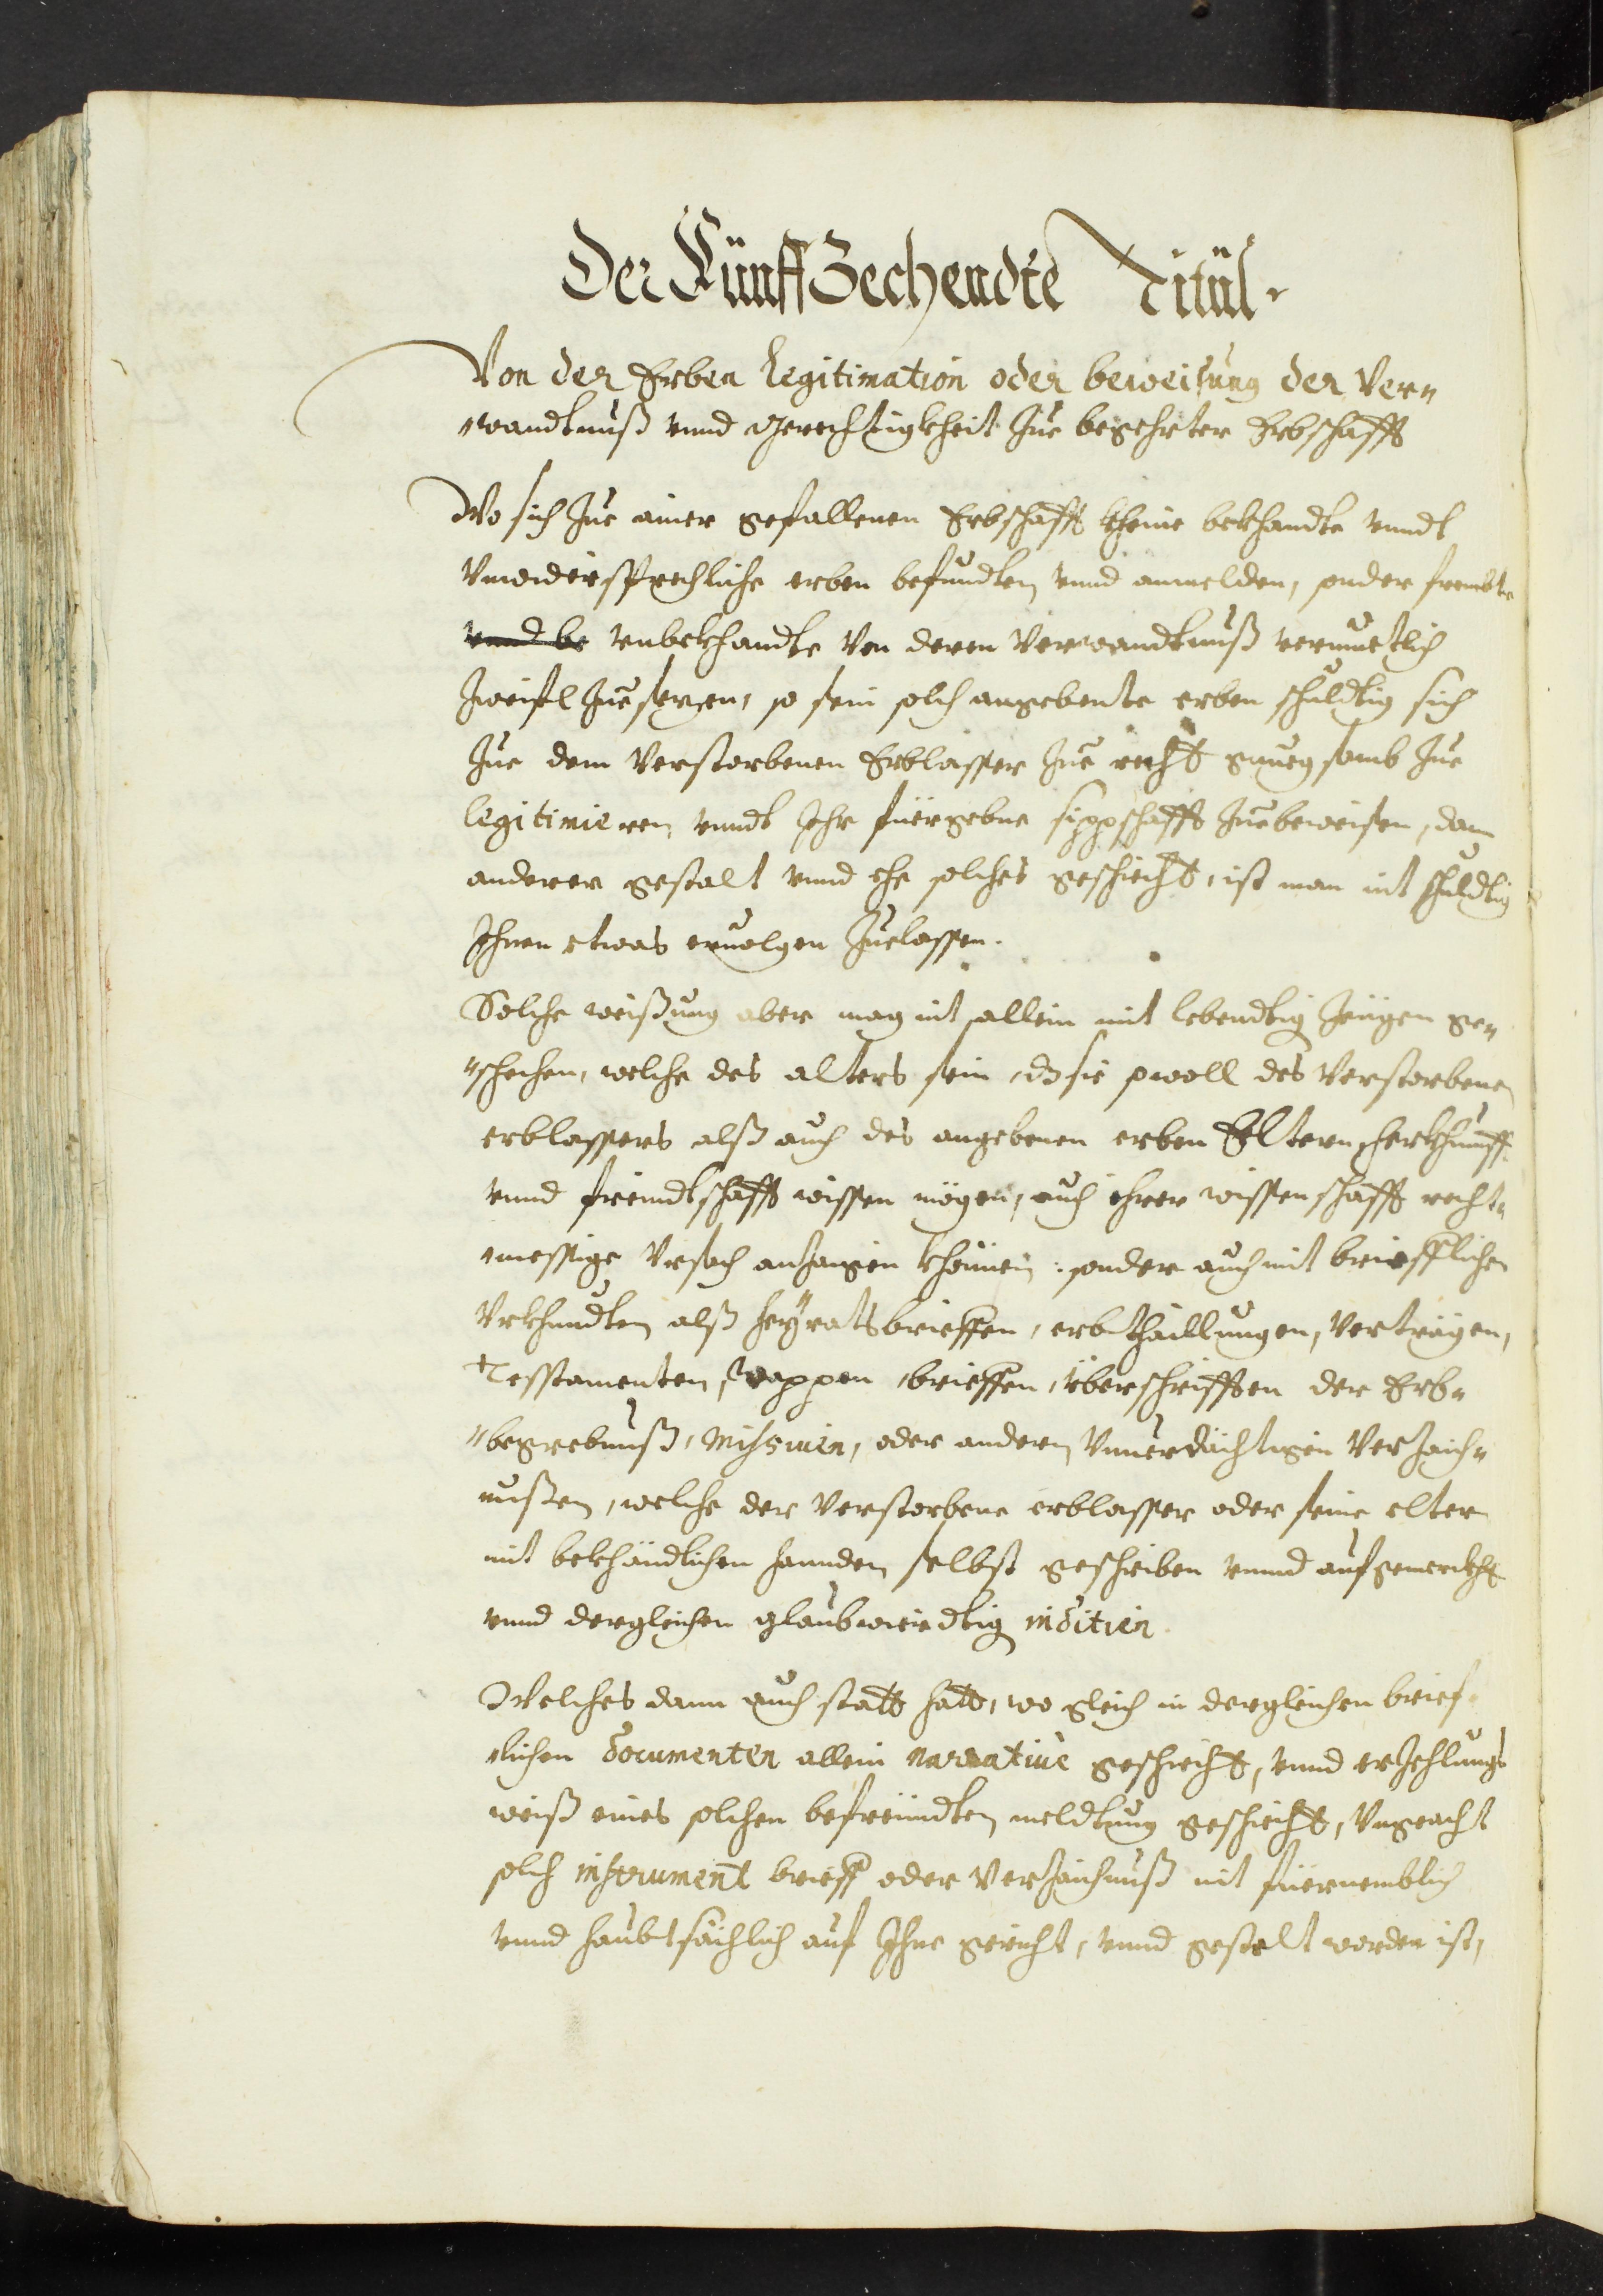 Der Fünff Zechendte Titül.
Von der Erben Legitimation oder beweisung der Ver„
„wandtnuß vnnd Gerechtigkheit Zue begehrter Erbschafft
Wo sich Zue ainer gefallenen Erbschafft kheine bekhandte vnndt
Vnwidersprechliche erben befundten vnnd anmelden, sonder frembte
vnd be vnbekhandte Von deren Verwandtnuß vermuetlich
Zweifl Zue sezen, so sein solch angebente erben schuldtig sich
Zue dem Verstorbenen Erblasser Zue recht gnuegsamb Zue
legitimieren, vnndt Ihr füergebne sippschafft Zuebeweisen, dan
anderer gestalt vnnd ehe solches geschiecht, ist man nit schuldtig
Ihnen etwas ervolgen Zuelassen.
Solche weißung aber mag nit allein mit lebendtig Zeügen ge„
„schechen, welche des alters sein, dz sie sowoll des Verstorbenen
erblassers alß auch des angebenen erben Eltern, herkhunfft
vnnd freindtschafft wissen mögen, auch ihrer wissenschafft recht„
„messige Vrsach anzaigen khönnen: sonder auch mit briefflichen
Vrkhundten alß heyratsbrieffen, erbthaillungen, Verträgen,
Testamenten, Wappen brieffen, überschrifften der Erb„
„begrebnuß, Missiuen, oder andern Vnuerdächtigen Verzaich„
nußen, welche der Verstorbene erblasser oder seine elter
mit bekhändlichen hannden selbst geschriben vnnd aufgemerckht
vnnd dergleichen glaubwirdtig inditien.
Welches dann auch statt hatt, wo gleich in dergleichen brief„
„lichen documenten allein narratiuè geschicht, vnnd erzehlungs
weiß eines solchen befreündten meldtung geschicht, Vngeacht
solch instrument brieff oder Verzaichnuß nit füernemblich
vnnd haubtsächlich auf Ihne gericht, vnnd gestelt worden ist,